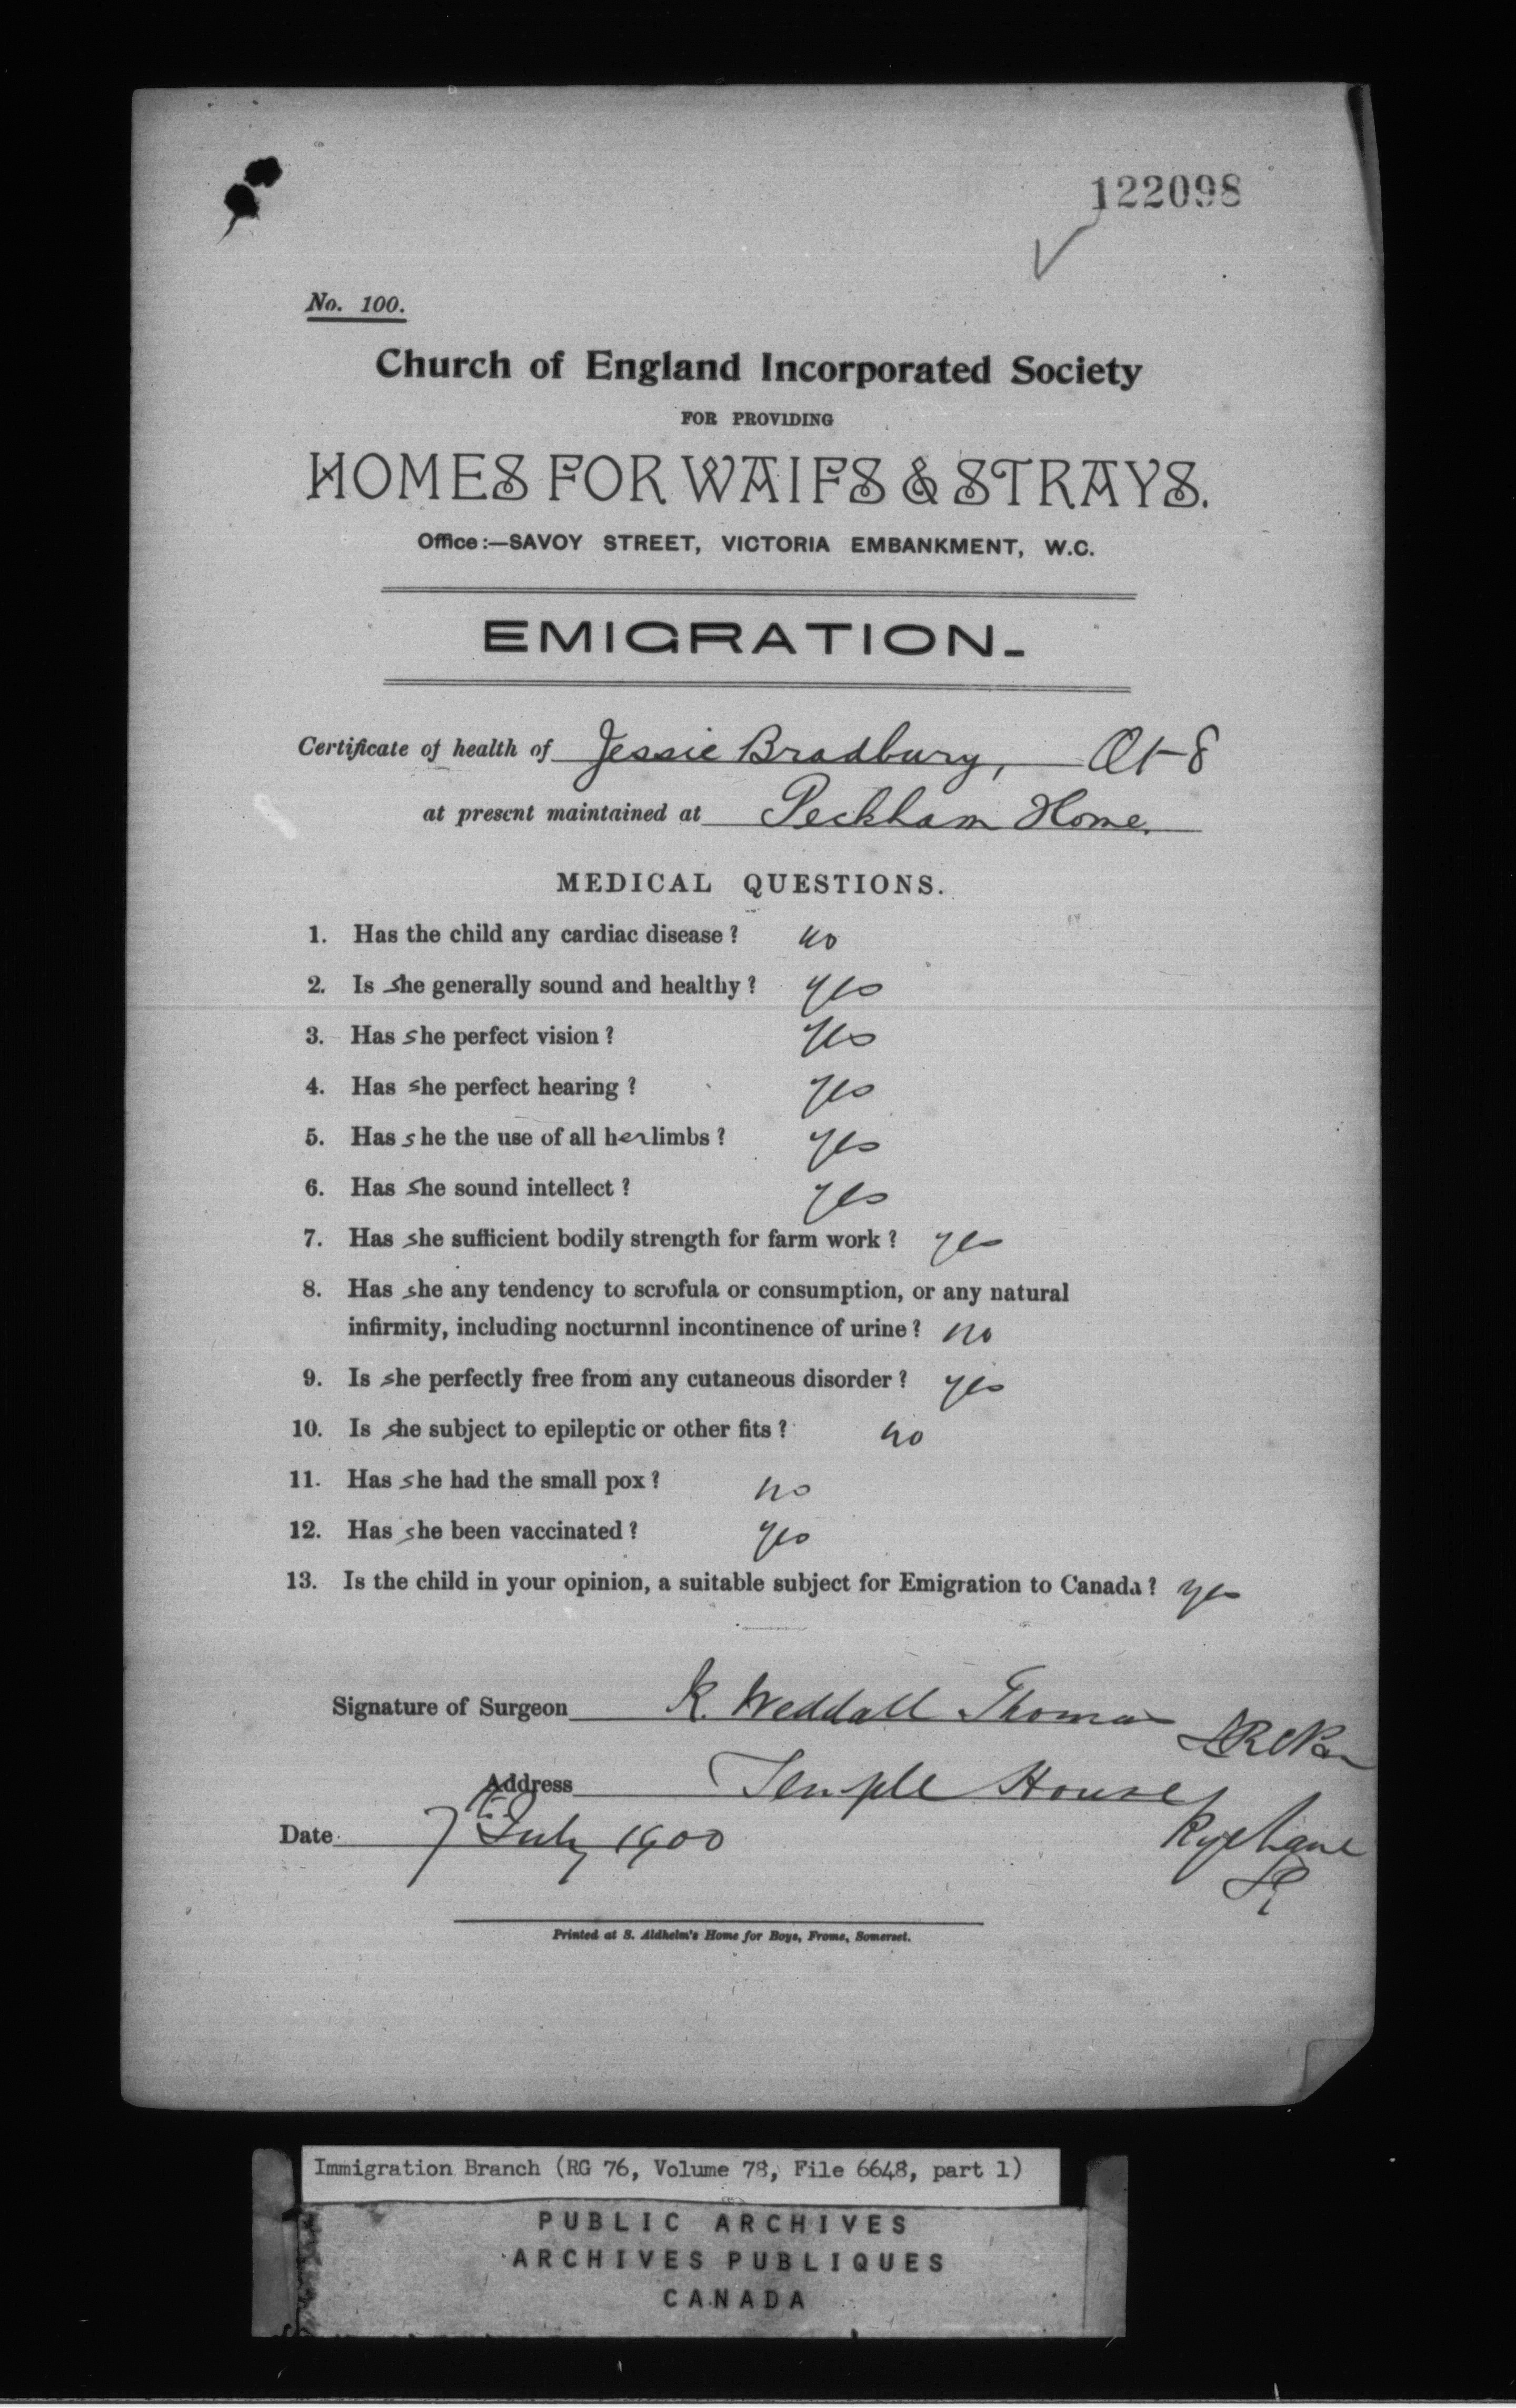 122098
No. 100.
Church of England Incorporated Society
FOR PROVIDING
HOMES FOR WAIFS & STRAYS.
Office:—SAVOY STREET, VICTORIA EMBANKMENT, W.C.
EMIGRATION.
Certificate of health of Jessie Bradbury, 8
at present maintained at Peckham Home.
MEDICAL QUESTIONS.
1. Has the child any cardiac disease? no
2. Is she generally sound and healthy? yes
3. Has she perfect vision? yes
4. Has she perfect hearing? yes
5. Has she the use of all her limbs? yes
6. Has she sound intellect? yes
7. Has she sufficient bodily strength for farm work? yes
8. Has she any tendency to scrofula or consumption, or any natural
infirmity, including nocturnnl incontinence of urine? no
9. Is she perfectly free from any cutaneous disorder? yes
10. Is she subject to epileptic or other fits? no
11. Has she had the small pox? no
12. Has she been vaccinated? yes
13. Is the child in your opinion, a suitable subject for Emigration to Canada? yes
Signature of Surgeon K. Weddall Thomas
Address Temple House
Date 7th July 1900 Rye Lane
Printed at S. Aldhelm's Home for Boys, Frome, Somerset.
Immigration Branch (RG 76, Volume 78, File 6648, part 1)
PUBLIC ARCHIVES
ARCHIVES PUBLIQUES
CANADA